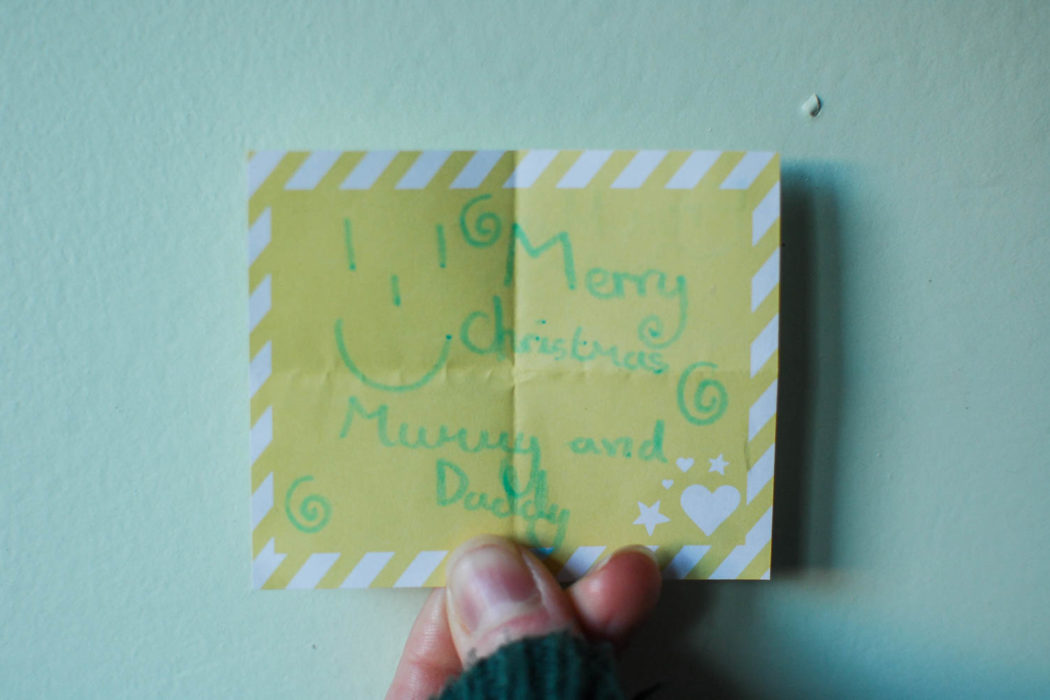 Merry
Christmas
Mummy and
Daddy